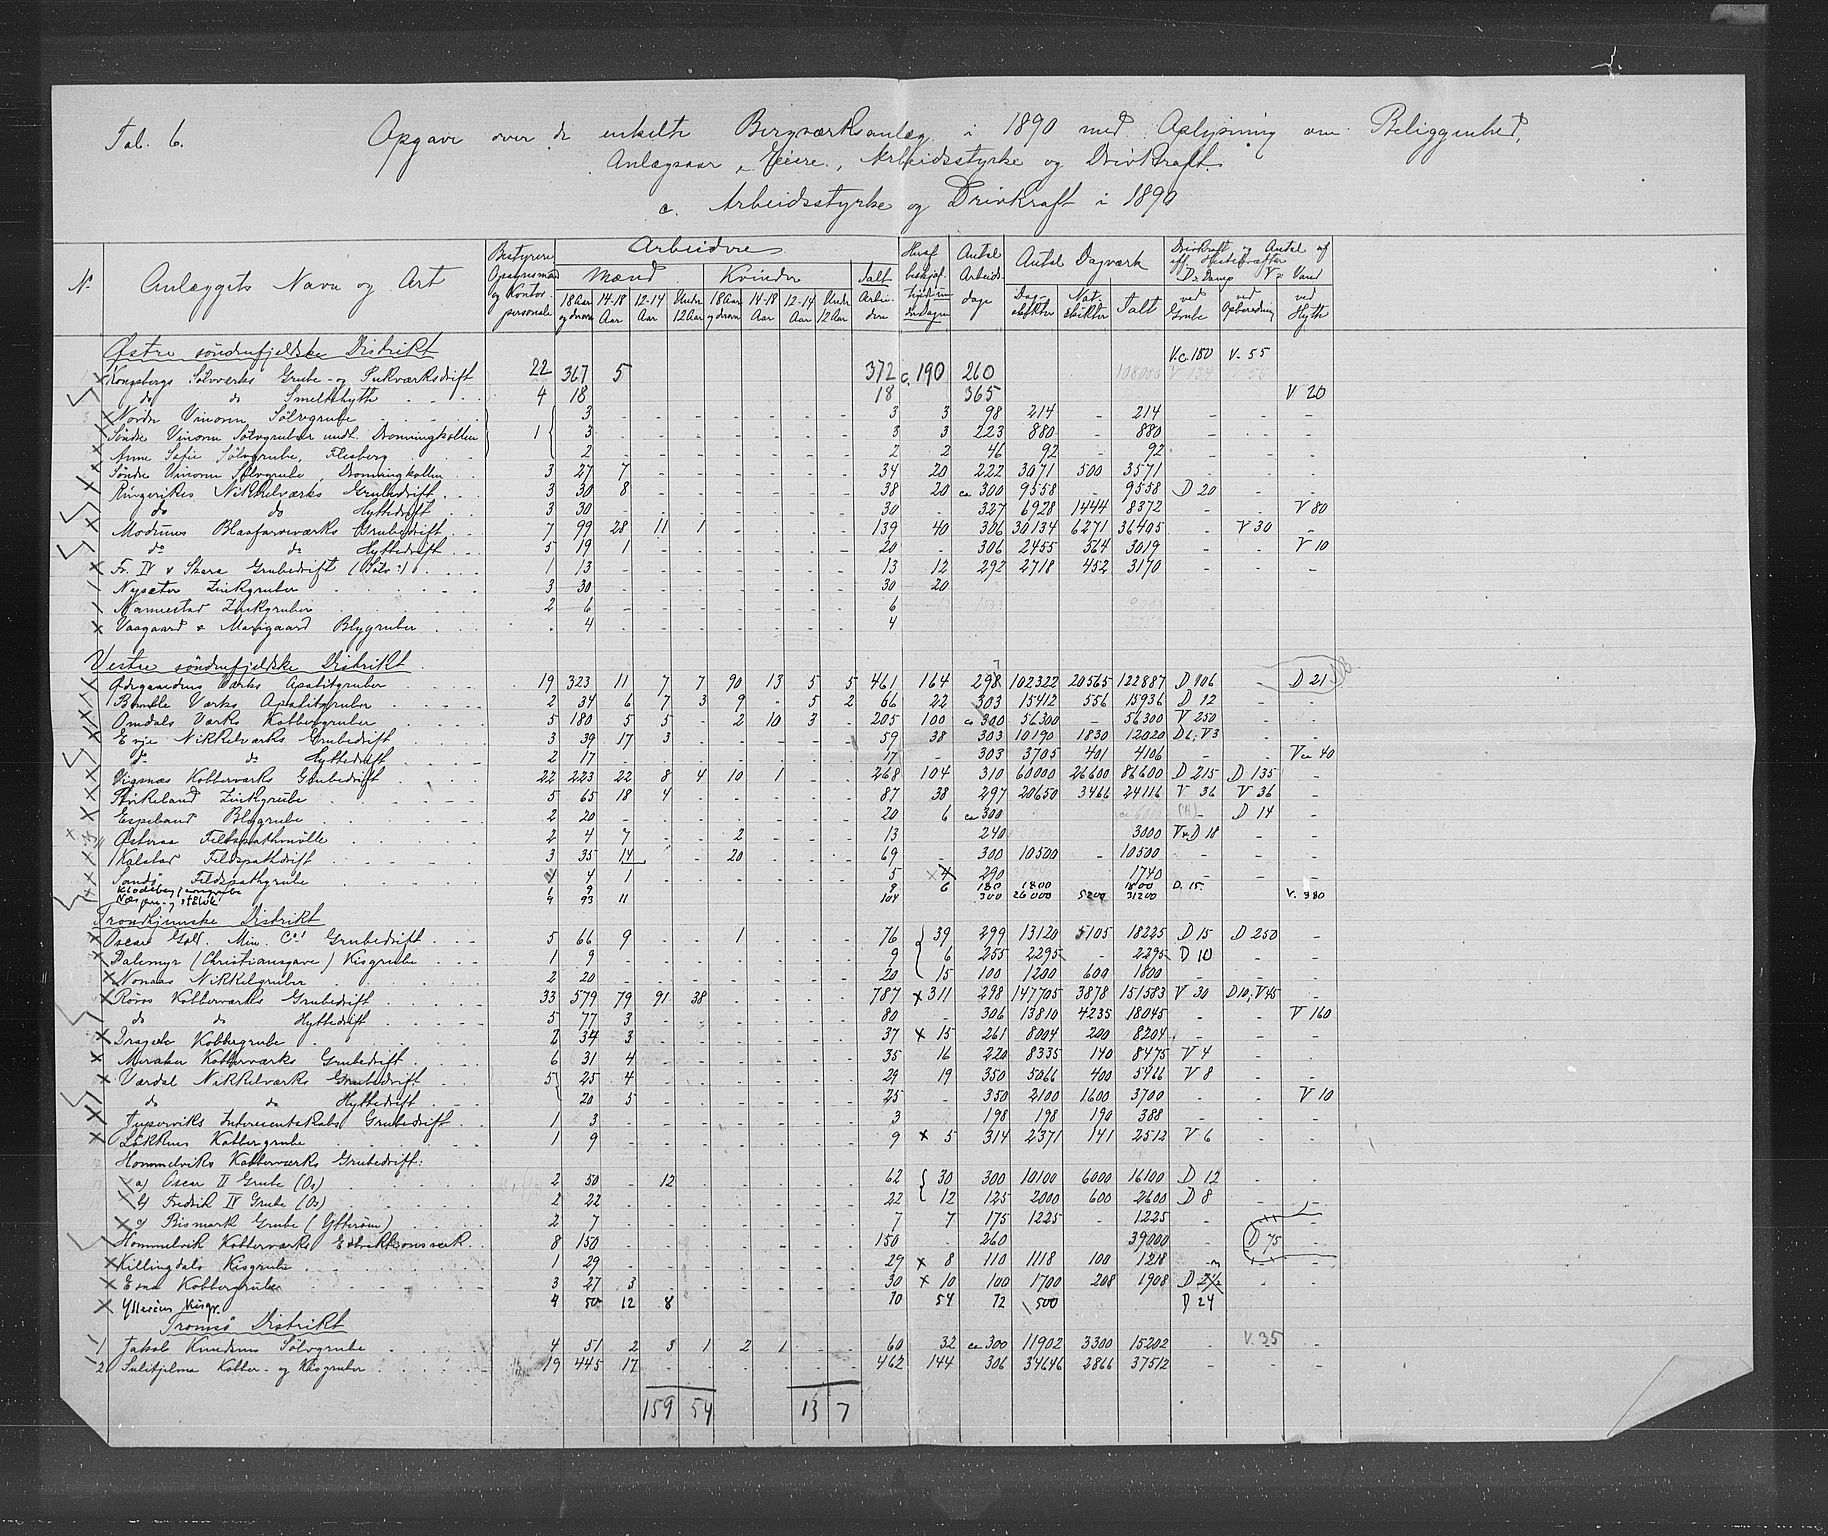 Tab. 6. Opgave over de enkelte Bergværksanlæg i 1890 med Oplysning om Beliggenhed,
Anlægsaar, Eiere, Arbeidsstyrke og Drivkraft.
c. Arbeidsstyrke og Drivkraft i 1890
No Anlæggets Navn og Art Bestyrere Opsynsmænd og Kontorpersonale Arbeidere Heraf beskjæf. Antal Arbeidsdage Antal Dagværk Drivkraft og Antal af eff. Hestekræfter
Mænd Kvinder Ialt Arbeidere D: Damp V: Vand
18 Aar og derov. 14-18 Aar 12-14 Aar Under 12 Aar 18 Aar og derov. 14-18 Aar 12-14 Aar Under 12 Aar Dagskikter Natskikter Ialt ved Grube ved Opberedning ved Hytte
Østre søndenfjeldske Distrikt V.c. 180 V. 55
Kongsbergs Sølvværks Grube- og Pukværksdrift 22 367 5 372 c. 190 260
do do Smeltehytte 4 18 18 365 V 20
Nordre Vinoren Sølvgrube 3 - - - - - - - 3 3 98 214 - 214 - - -
Søndre Vinoren Sølvgruber undt. Dronningkollen 1 3 - - - - - - - 3 3 223 880 - 880 - - -
Anne Sofie Sølvgrube, Flesberg 2 - - - - - - - 2 2 46 92 - 92 - - -
Søndre Vinoren Sølvgrube, Dronningkollen 3 27 7 - - - - - - 34 20 222 3071 500 3571 - - -
Ringerikes Nikkelværks Grubedrift 3 30 8 - - - - - - 38 20 ca 300 9558 - 9558 D 20 - -
do do Hyttedrift 3 30 - - - - - - - 30 - 327 6928 1444 8372 - - V 80
Modums Blaafarveværks Grubedrift 7 99 28 11 1 - - - - 139 40 306 30134 6271 36405 - V 30 -
do do Hyttedrift 5 19 1 - - - - - - 20 - 306 2455 564 3019 - - V 10
Fr. IV & Skara Grubedrift (Sølv) 1 13 - - - - - - - 13 12 292 2718 452 3170 - - -
Nysæter Zinkgruber 3 30 - - - - - - - 30 20
Nannestad Zinkgruber 2 6 - - - - - - - 6
Vaagaard & Marigaard Blygruber - 4 - - - - - - - 4
Vestre søndenfjeldske Distrikt
Ødegaardens Værks Apatitgruber 19 323 11 7 7 90 13 5 5 461 164 298 102322 20565 122887 D 106 - D 21
Bamble Værks Apatitgruber 2 34 6 7 3 9 - 5 2 66 22 303 15412 556 15936 D 12 - -
Omdals Værks Kobbergruber 5 180 5 5 - 2 10 3 - 205 100 ca 300 56300 - 56300 V 250 - -
Evje Nikkelværks Grubedrift 3 39 17 3 - - - - - 59 38 303 10190 1830 12020 D 6; V 3 - -
do do Hyttedrift 2 17 - - - - - - - 17 - 303 3705 401 4106 - - V ca 40
Vigsnæs Kobberværks Grubedrift 22 223 22 8 4 10 1 - - 268 104 310 60000 26600 86600 D 215 D 135 -
Birkeland Zinkgrube 5 65 18 4 - - - - - 87 38 297 20650 3466 24116 V 36 V 36 -
Espeland Blygrube 2 20 - - - - - - - 20 6 ca 300 - D 14 -
Østeraa Feldspathmölle 2 4 7 - - 2 - - - 13 240 3000 V & D 18 - -
Kalstad Feldspathdrift 3 35 14 - - 20 - - - 69 - 300 10500 - 10500 - - -
Sandø Feldspathgrube 4 1 - - - - - - 5 290 1740 - - -
Klodeberg Jerngrube 1 9 9 6 180 1800 1800 D. 15
Næs jern- og stålvk 9 93 11 104 300 26000 5200 31200 V. 380
Trondhjemske Distrikt
Oscars Gold. Min. Co's Grubedrift 5 66 9 - - 1 - - - 76 39 299 13120 5105 18225 D 15 D 250 -
Dalemyr (Christiansgave) Kisgrube 1 9 - - - - - - - 9 6 255 2295 - 2295 D 10 - -
Nonaas Nikkelgruber 2 20 - - - - - - - 20 15 100 1200 600 1800 - - -
Røros Kobberværks Grubedrift 33 579 79 91 38 - - - - 787 x 311 298 147705 3878 151583 V 30 D10; V45 -
do do Hyttedrift 5 77 3 - - - - - - 80 - 306 13810 4235 18045 - - V 160
Dragede Kobbergrube 2 34 3 - - - - - - 37 x 15 261 8004 200 8204 - - -
Meraker Kobberværks Grubedrift 6 31 4 - - - - - - 35 16 220 8335 140 8475 V 4 - -
Værdal Nikkelværks Grubedrift 5 25 4 - - - - - - 29 19 350 5066 400 5466 V 8 - -
do do Hyttedrift 20 5 - - - - - - 25 - 350 2100 1600 3700 - - V 10
Interesentskabs Grubedrift 1 3 - - - - - - - 3 198 198 190 388 - - -
Løkkens Kobbergrube 1 9 - - - - - - - 9 x 5 314 2371 141 2512 V 6 - -
Hommelviks Kobberværks Grubedrift:
a) Oscar II Grube (Os) 2 50 - 12 - - - - - 62 30 300 10100 6000 16100 D 12 - -
b) Fredrik IV Grube (Os) 2 22 - - - - - - - 22 12 125 2000 600 2600 D 8 - -
c) Bismark Grube (Ytterøen) 2 7 - - - - - - - 7 7 175 1225 - 1225 - - -
Hommelvik Kobberværks Extraktionsværk 8 150 - - - - - - - 150 - 260 39000 - D 75 -
Killingdals Kisgrube 1 29 - - - - - - - 29 x 8 110 1118 100 1218 - - -
Esna Kobbergruber 3 27 3 - - - - - - 30 x 10 100 1700 208 1908 D 2½ - -
Ytterøens Kisgr. 4 50 12 8 70 54 72 500 D 24
Tromsø Distrikt
1 Jakob Knudsens Sølvgrube 4 51 2 3 1 2 1 - - 60 32 ca 300 11902 3300 15202 - V. 35 -
2 Sulitjelma Kobber- og Kisgruber 19 445 17 - - - - - - 462 144 306 34646 2866 37512 - - -
159 54 13 7